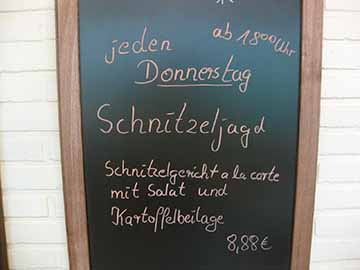 jeden ab 1800 Uhr
Donnerstag
Schnitzeljagd
Schnitzelgericht a la corte
mit Salat und
Kartoffelbeilage
8,88€